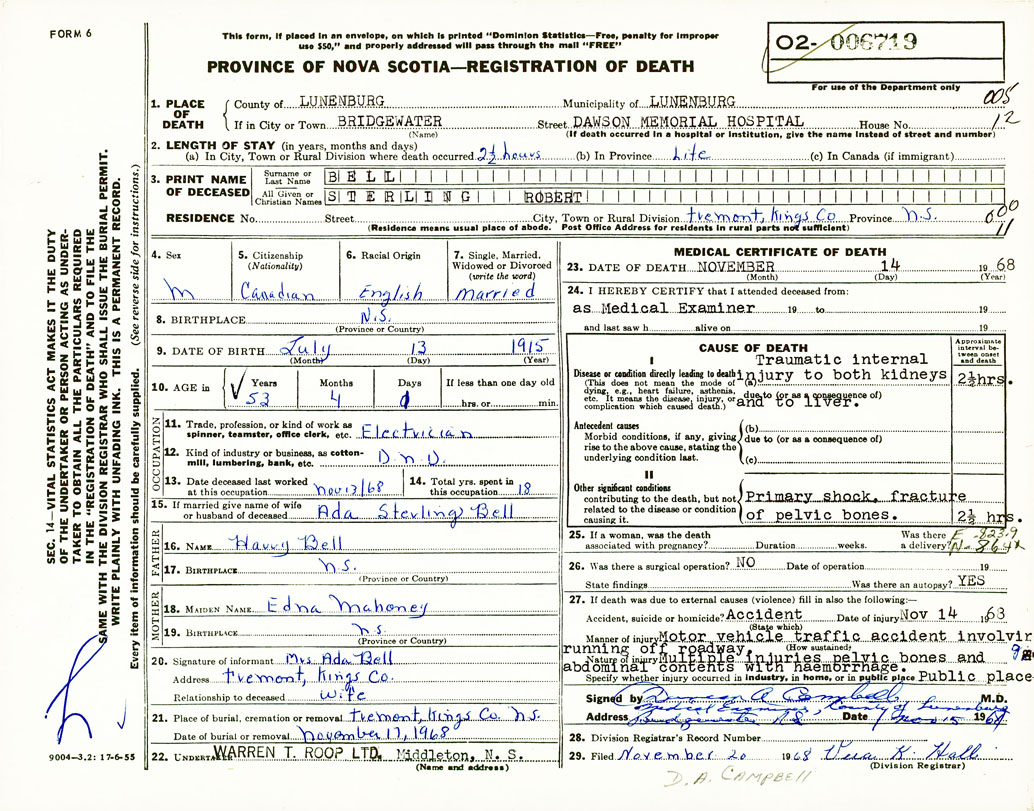 FORM 6
This form, if placed in an envelope, on which is printed "Dominion Statistics—Free, penalty for improper
use $50," and properly addressed will pass through the mail "FREE"
O2- 006719
PROVINCE OF NOVA SCOTIA—REGISTRATION OF DEATH
For use of the Department only
005
12
1. PLACE OF DEATH
County of LUNENBURG Municipality of LUNENBURG
If in City or Town BRIDGEWATER Street DAWSON MEMORIAL HOSPITAL House No.
(Name) (If death occurred in a hospital or institution, give the name instead of street and number)
2. LENGTH OF STAY (in years, months and days)
(a) In City, Town or Rural Division where death occurred 2½ hours (b) In Province Life (c) In Canada (if immigrant)
3. PRINT NAME OF DECEASED
Surname or Last Name BELL
All Given or Christian Names STERLING ROBERT
RESIDENCE No. Street City, Town or Rural Division Tremont, Kings Co Province N.S.
(Residence means usual place of abode. Post Office Address for residents in rural parts not sufficient)
000
11
4. Sex M
5. Citizenship (Nationality) Canadian
6. Racial Origin English
7. Single, Married, Widowed or Divorced (write the word) Married
8. BIRTHPLACE N.S.
(Province or Country)
9. DATE OF BIRTH July 13 1915
(Month) (Day) (Year)
10. AGE in Years 53 Months 4 Days 1 If less than one day old hrs. or min.
OCCUPATION
11. Trade, profession, or kind of work as spinner, teamster, office clerk, etc. Electrician
12. Kind of industry or business, as cotton-mill, lumbering, bank, etc. D.N.D.
13. Date deceased last worked at this occupation Nov 13/68
14. Total yrs. spent in this occupation 18
15. If married give name of wife or husband of deceased Ada Sterling Bell
FATHER
16. NAME Harry Bell
17. BIRTHPLACE N.S.
(Province or Country)
MOTHER
18. MAIDEN NAME Edna Mahoney
19. BIRTHPLACE N.S.
(Province or Country)
20. Signature of informant Mrs Ada Bell
Address Tremont, Kings Co.
Relationship to deceased Wife
21. Place of burial, cremation or removal Tremont, Kings Co. N.S.
Date of burial or removal November 17, 1968
22. UNDERTAKER WARREN T. ROOP LTD. Middleton, N. S.
(Name and address)
MEDICAL CERTIFICATE OF DEATH
23. DATE OF DEATH NOVEMBER 14 1968
(Month) (Day) (Year)
24. I HEREBY CERTIFY that I attended deceased from:
as Medical Examiner 19 to 19
and last saw h alive on 19
CAUSE OF DEATH
Approximate interval between onset and death
I
Disease or condition directly leading to death
(This does not mean the mode of dying, e.g., heart failure, asthenia, etc. It means the disease, injury, or complication which caused death.)
(a) Traumatic internal
injury to both kidneys 2½hrs.
due to (or as a consequence of)
and to liver.
Antecedent causes
Morbid conditions, if any, giving rise to the above cause, stating the underlying condition last.
(b)
due to (or as a consequence of)
(c)
II
Other significant conditions
contributing to the death, but not related to the disease or condition causing it.
Primary shock, fracture
of pelvic bones. 2½ hrs.
25. If a woman, was the death associated with pregnancy? Duration weeks. Was there a delivery?
E - 823.9
N-864X
26. Was there a surgical operation? NO Date of operation 19
State findings Was there an autopsy? YES
27. If death was due to external causes (violence) fill in also the following:—
Accident, suicide or homicide? Accident Date of injury Nov 14 1968
(State which)
Manner of injury Motor vehicle traffic accident involvin
running off roadway. (How sustained)
Nature of injury Multiple injuries pelvic bones and
abdominal contents with haemorrhage.
Specify whether injury occurred in industry, in home, or in public place Public place
Signed by Duncan A. Campbell M.D.
Medical Examiner, County of Lunenburg
Address Bridgewater N.S. Date Nov 15 1968
28. Division Registrar's Record Number
29. Filed November 20 1968 K. Hall
(Division Registrar)
D. A. CAMPBELL
SEC. 14—VITAL STATISTICS ACT MAKES IT THE DUTY
OF THE UNDERTAKER OR PERSON ACTING AS UNDER-
TAKER TO OBTAIN ALL THE PARTICULARS REQUIRED
IN THE "REGISTRATION OF DEATH" AND TO FILE THE
SAME WITH THE DIVISION REGISTRAR WHO SHALL ISSUE THE BURIAL PERMIT.
WRITE PLAINLY WITH UNFADING INK. THIS IS A PERMANENT RECORD.
Every item of information should be carefully supplied. (See reverse side for instructions.)
9004—3,2: 17-6-55